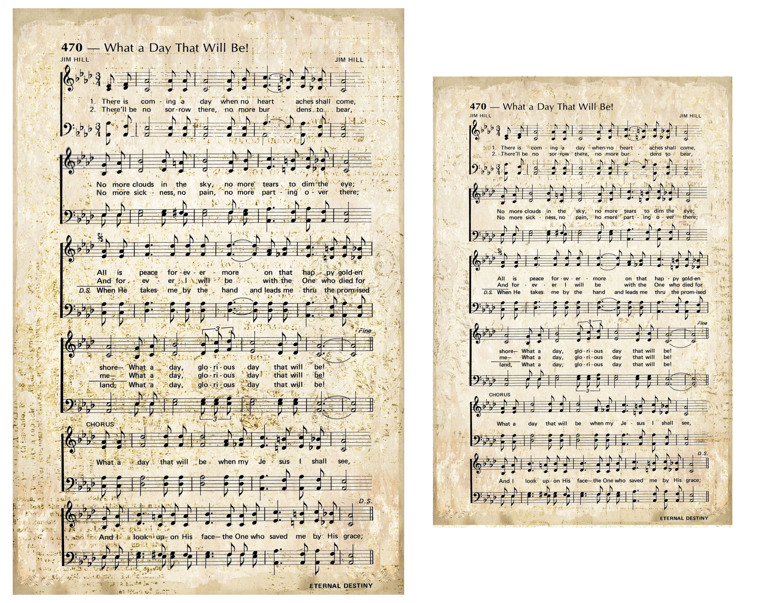 470 — What a Day That Will Be!
JIM HILL JIM HILL
1. There is com - ing a day when no heart aches shall come,
2. There'll be no sor - row there, no more bur - dens to bear,
No more clouds in the sky, no more tears to dim the eye;
No more sick - ness, no pain, no more part - ing o - ver there;
All is peace for - ev - er - more on that hap - py gold - en
And for - ev - er I will be with the One who died for
D.S. When He takes me by the hand and leads me thru the prom - ised
Fine
shore— What a day, glo - ri - ous day that will be!
me— What a day, glo - ri - ous day that will be!
land, What a day, glo - ri - ous day that will be!
CHORUS
What a day that will be when my Je - sus I shall see,
D.S.
And I look up - on His face—the One who saved me by His grace;
ETERNAL DESTINY
470 — What a Day That Will Be!
JIM HILL JIM HILL
1. There is com - ing a day when no heart aches shall come,
2. There'll be no sor - row there, no more bur - dens to bear,
No more clouds in the sky, no more tears to dim the eye;
No more sick - ness, no pain, no more part - ing o - ver there;
All is peace for - ev - er - more on that hap - py gold - en
And for - ev - er I will be with the One who died for
D.S. When He takes me by the hand and leads me thru the prom - ised
Fine
shore— What a day, glo - ri - ous day that will be!
me— What a day, glo - ri - ous day that will be!
land, What a day, glo - ri - ous day that will be!
CHORUS
What a day that will be when my Je - sus I shall see,
D.S.
And I look up - on His face—the One who saved me by His grace;
ETERNAL DESTINY